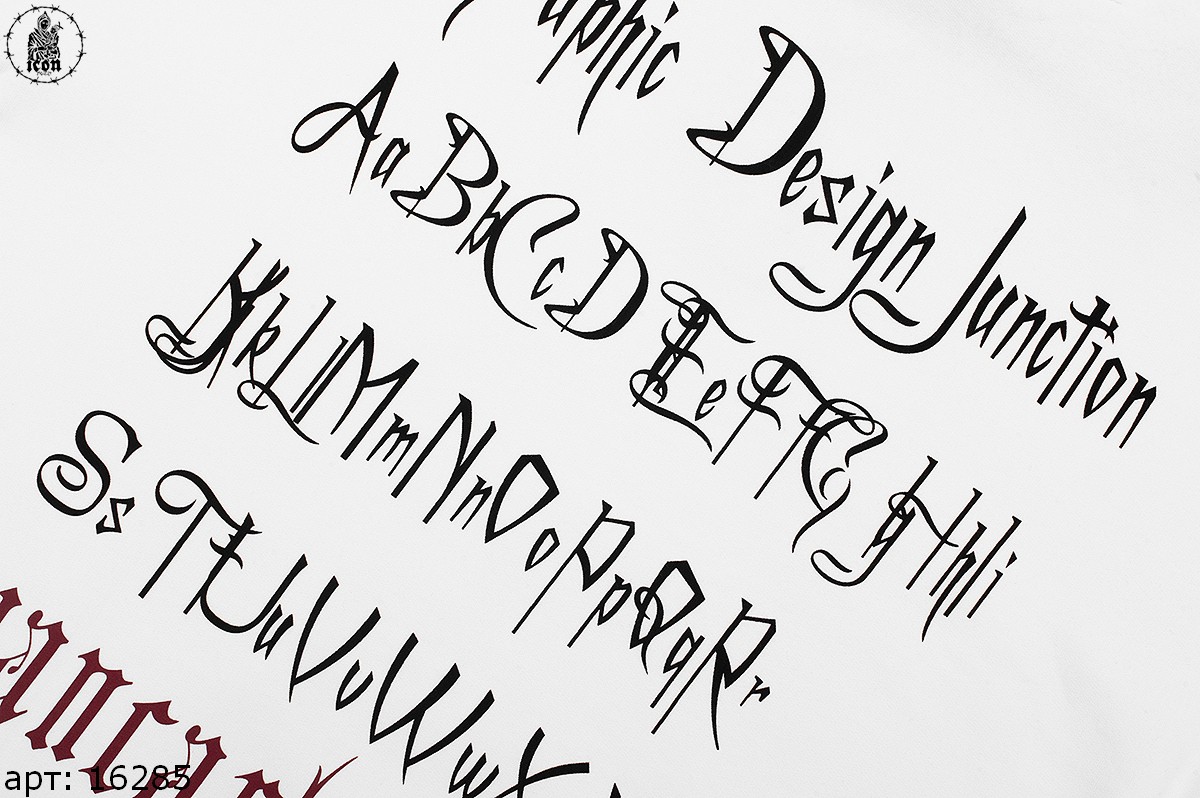 icon
aphic Design Junction
AaBbCcDEeFfGgHhIi
KkLlMmNnOoPpQqRr
SsTtUuVvWwX
арт: 16285